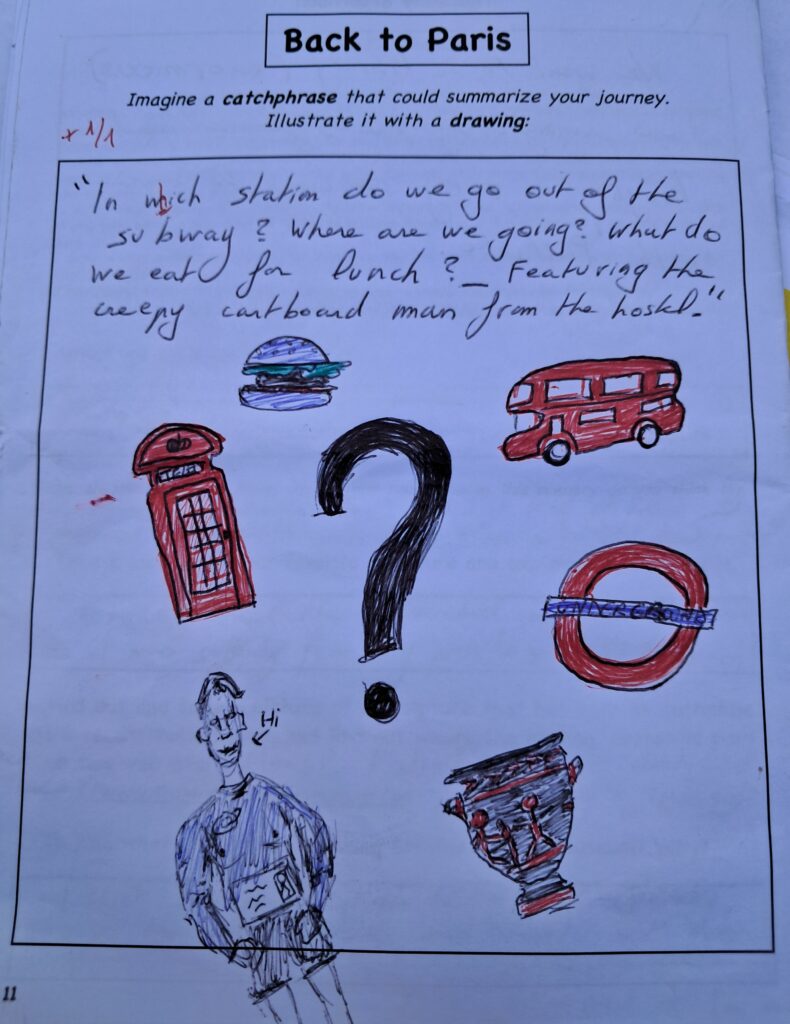 Back to Paris
Imagine a catchphrase that could summarize your journey.
Illustrate it with a drawing:
+ 1/1
"In which station do we go out of the
subway? Where are we going? What do
we eat for lunch? _ Featuring the
creepy cartboard man from the hostel."
UNDERGROUND
Hi
11